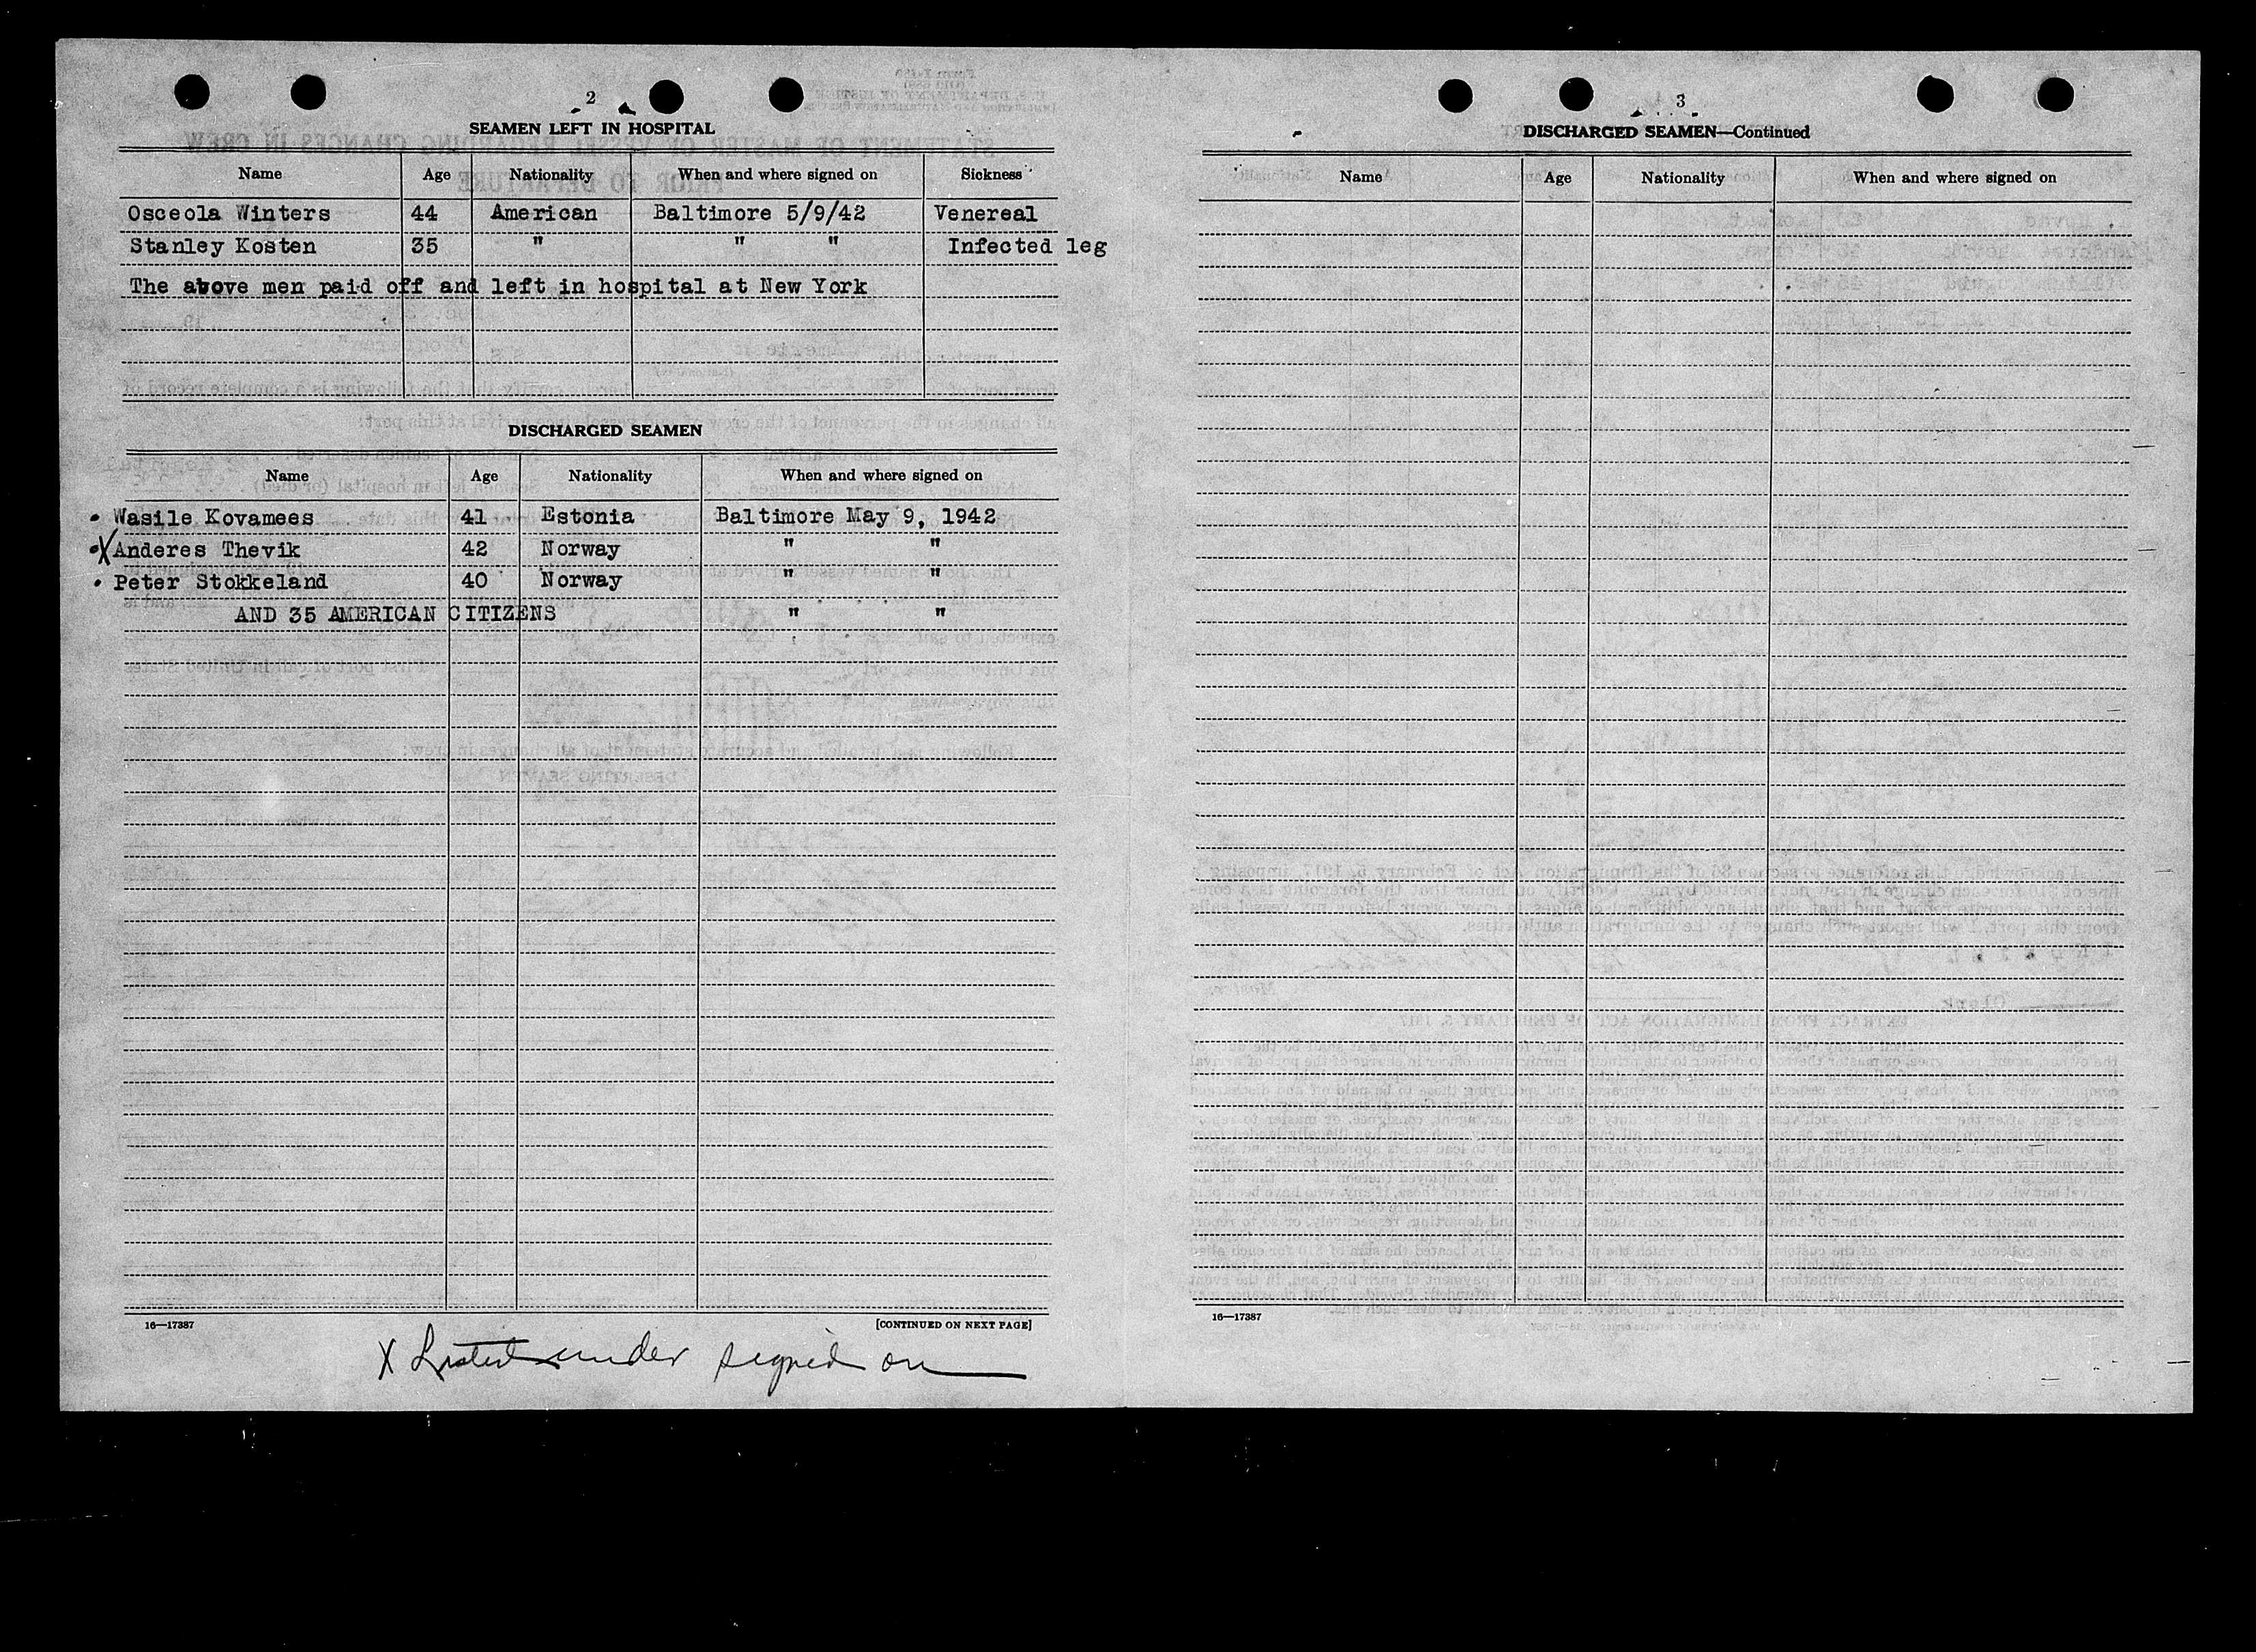 2
SEAMEN LEFT IN HOSPITAL
Name Age Nationality When and where signed on Sickness
Osceola Winters 44 American Baltimore 5/9/42 Venereal
Stanley Kosten 35 " " " Infected leg
The above men paid off and left in hospital at New York
DISCHARGED SEAMEN
Name Age Nationality When and where signed on
Wasile Kovamees 41 Estonia Baltimore May 9, 1942
X Anderes Thevik 42 Norway " "
Peter Stokkeland 40 Norway " "
AND 35 AMERICAN CITIZENS " "
16—17387 [CONTINUED ON NEXT PAGE]
X Listed under signed on
3
DISCHARGED SEAMEN—Continued
Name Age Nationality When and where signed on
16—17387